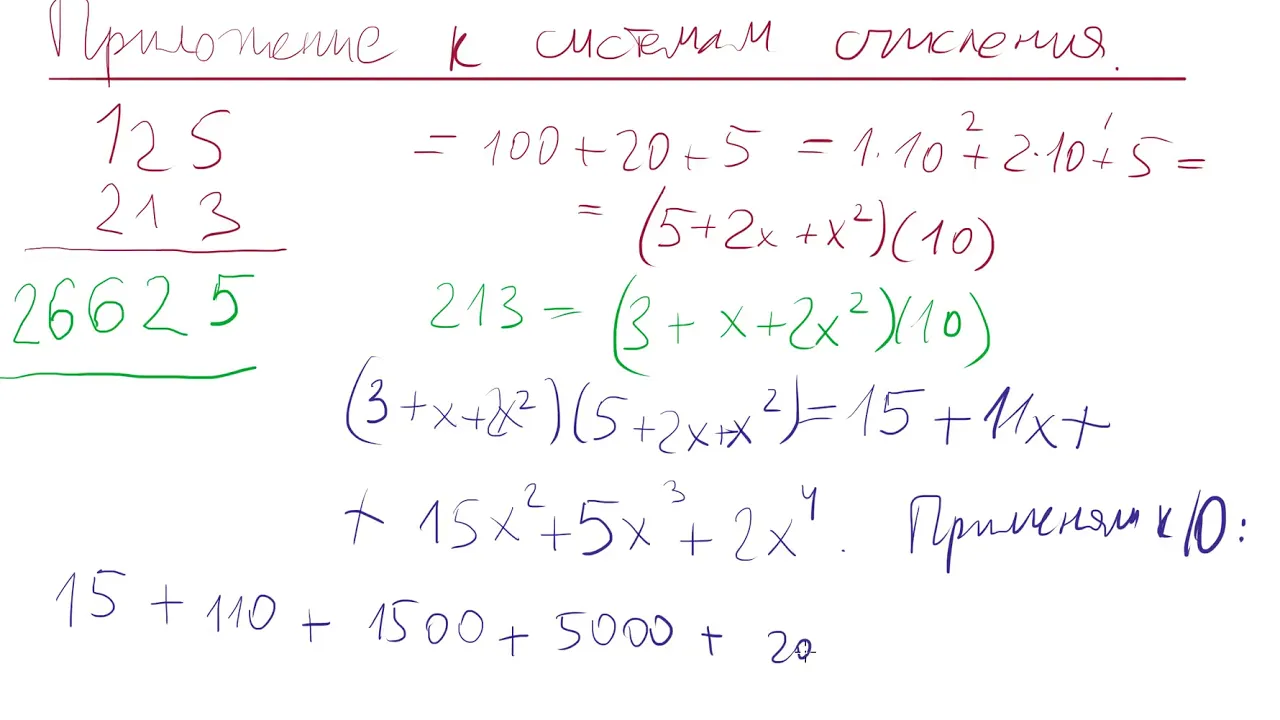 Приложение к системам счисления.
125 = 100 + 20 + 5 = 1·10² + 2·10¹ + 5 =
213 = (5 + 2x + x²)(10)
26625 213 = (3 + x + 2x²)(10)
(3 + x + 2x²)(5 + 2x + x²) = 15 + 11x +
+ 15x² + 5x³ + 2x⁴. Применяем к 10:
15 + 110 + 1500 + 5000 + 20